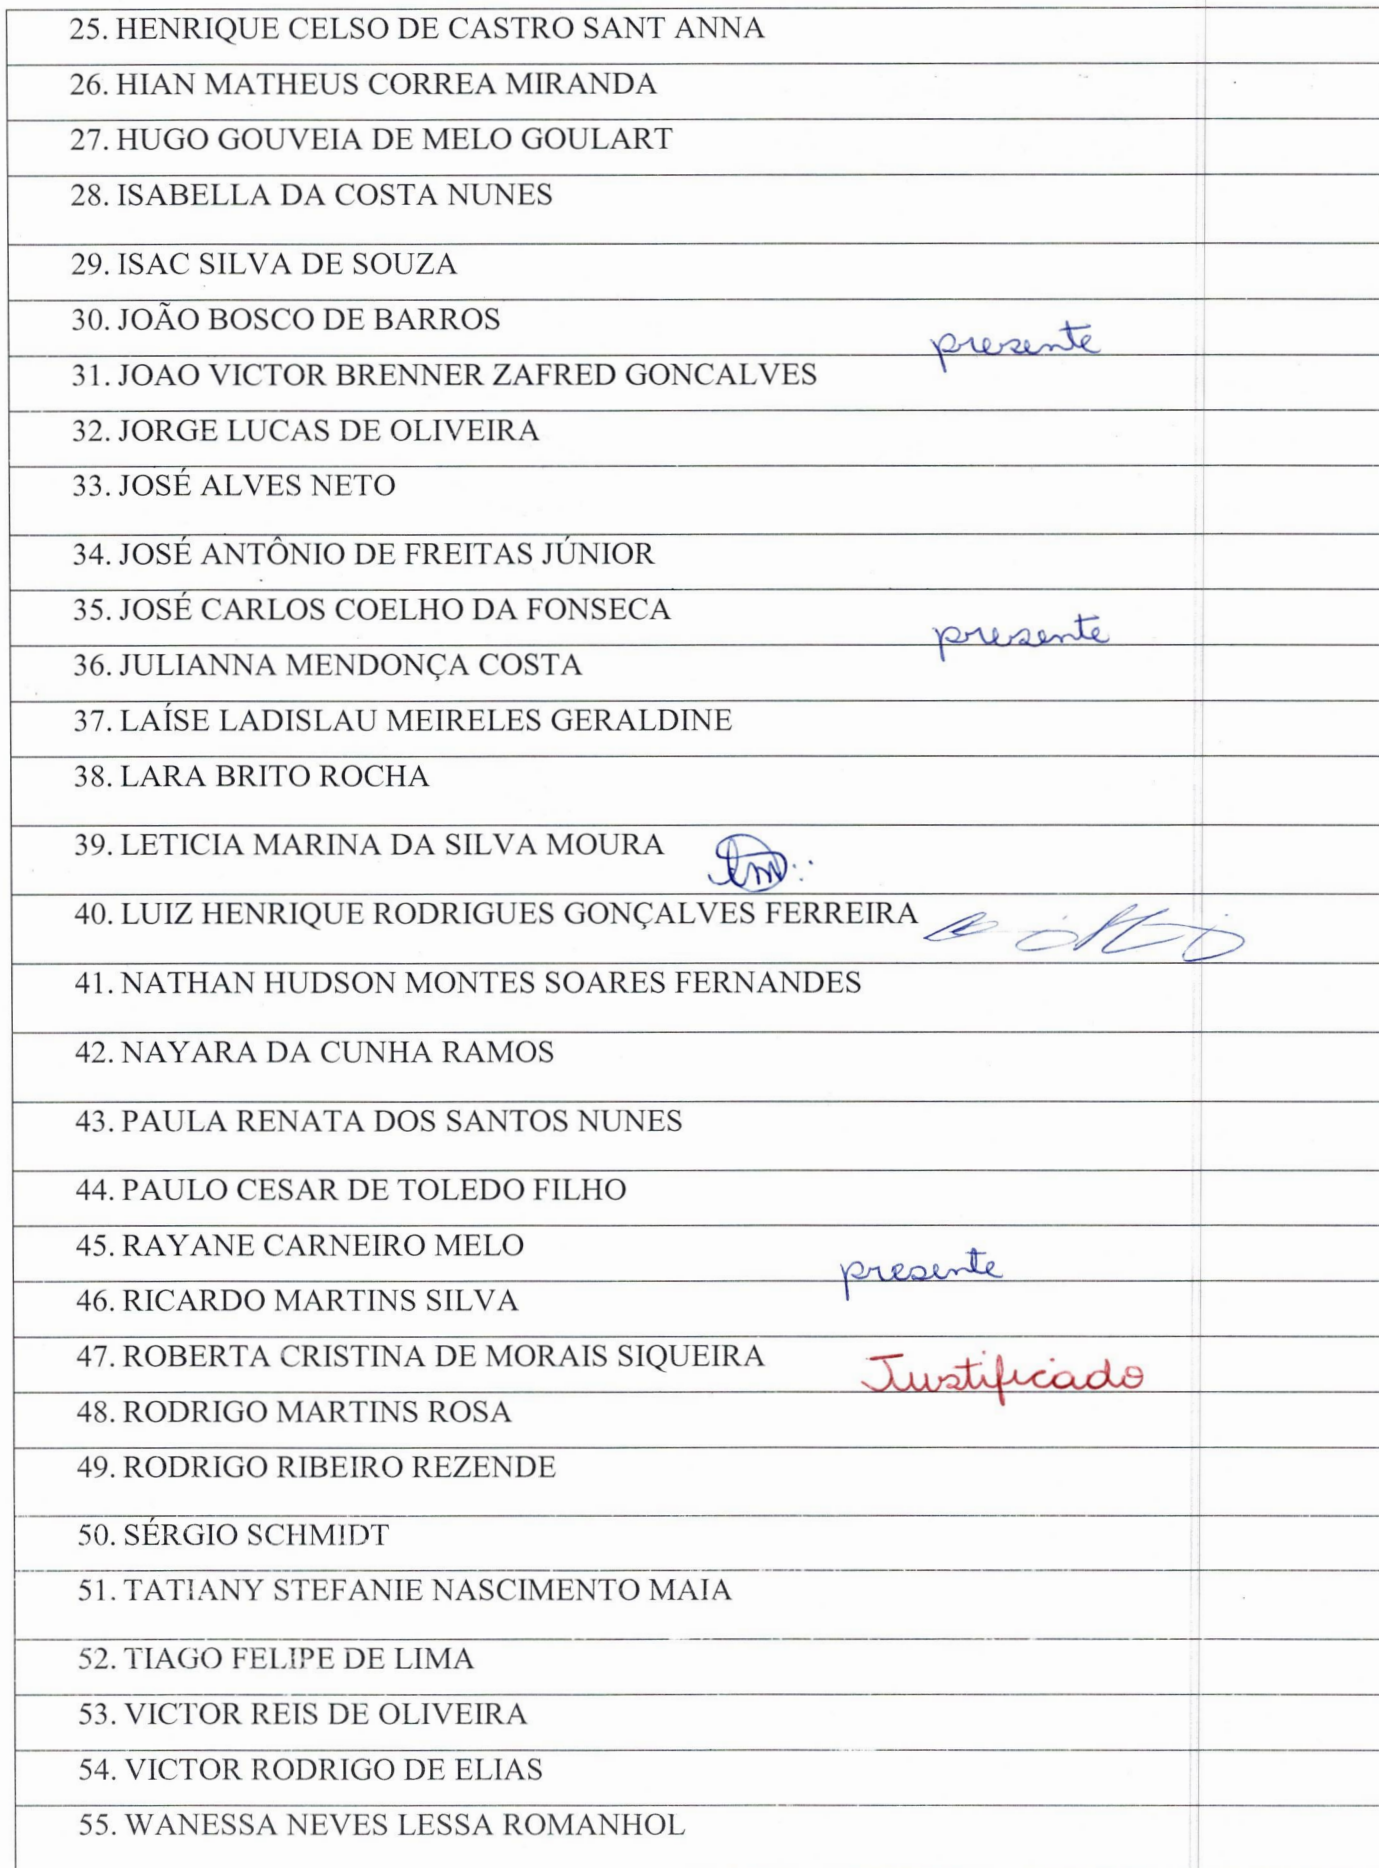 25. HENRIQUE CELSO DE CASTRO SANT ANNA
26. HIAN MATHEUS CORREA MIRANDA
27. HUGO GOUVEIA DE MELO GOULART
28. ISABELLA DA COSTA NUNES
29. ISAC SILVA DE SOUZA
30. JOÃO BOSCO DE BARROS presente
31. JOAO VICTOR BRENNER ZAFRED GONCALVES
32. JORGE LUCAS DE OLIVEIRA
33. JOSÉ ALVES NETO
34. JOSÉ ANTÔNIO DE FREITAS JÚNIOR
35. JOSÉ CARLOS COELHO DA FONSECA presente
36. JULIANNA MENDONÇA COSTA
37. LAÍSE LADISLAU MEIRELES GERALDINE
38. LARA BRITO ROCHA
39. LETICIA MARINA DA SILVA MOURA
40. LUIZ HENRIQUE RODRIGUES GONÇALVES FERREIRA
41. NATHAN HUDSON MONTES SOARES FERNANDES
42. NAYARA DA CUNHA RAMOS
43. PAULA RENATA DOS SANTOS NUNES
44. PAULO CESAR DE TOLEDO FILHO
45. RAYANE CARNEIRO MELO presente
46. RICARDO MARTINS SILVA
47. ROBERTA CRISTINA DE MORAIS SIQUEIRA Justificado
48. RODRIGO MARTINS ROSA
49. RODRIGO RIBEIRO REZENDE
50. SÉRGIO SCHMIDT
51. TATIANY STEFANIE NASCIMENTO MAIA
52. TIAGO FELIPE DE LIMA
53. VICTOR REIS DE OLIVEIRA
54. VICTOR RODRIGO DE ELIAS
55. WANESSA NEVES LESSA ROMANHOL